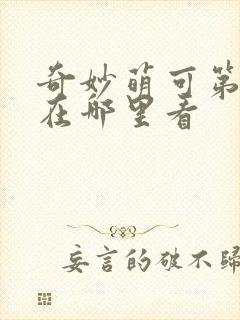 奇妙萌可第
在哪里看
妄言的破不歸